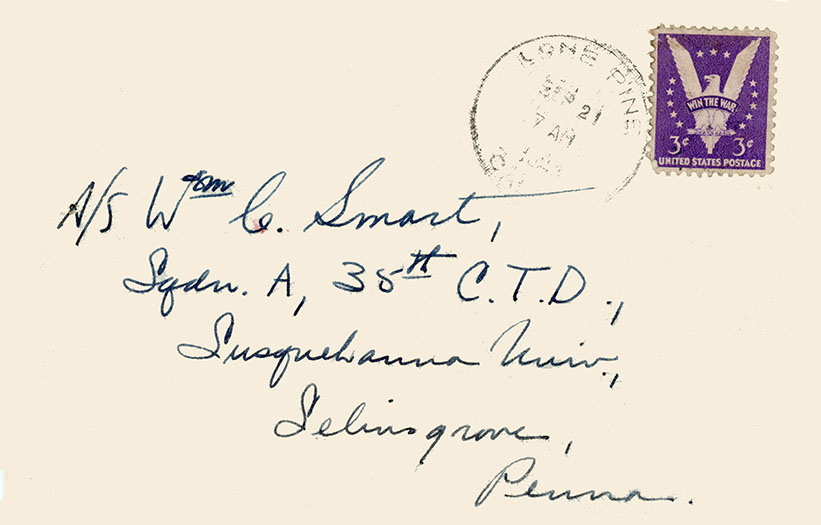 LONE PINE
SEP 21
7 AM
WIN THE WAR
3¢ 3¢
UNITED STATES POSTAGE
A/S Wm C. Smart,
Sqdn. A, 35th C.T.D.,
Susquehanna Univ.,
Selinsgrove,
Penna.